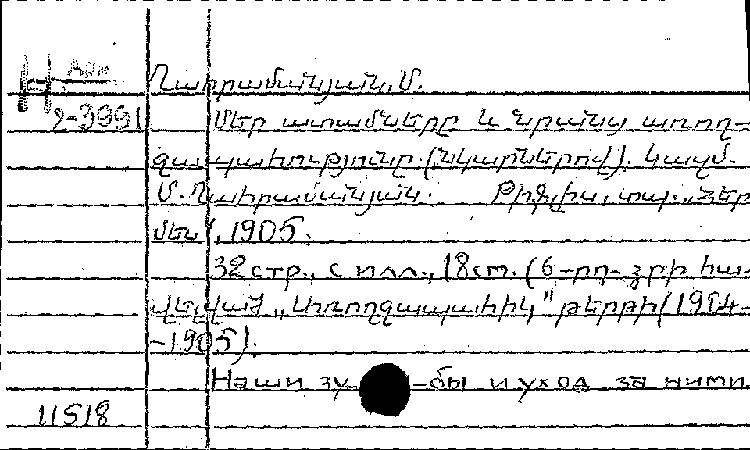 Ղահրամանյան, Մ.
2-3991 Մեր ատամները և նրանց առող-
ջապահությունը (նկարներով). Կազմ.
Մ. Ղահրամանյան. Թիֆլիս, տպ. „Հեր
մես“, 1905.
32 стр., с илл., 18 см. (6-րդ. գրքի հա-
վելված „Առողջապահիկ“ թերթի (1904-
-1905).
Наши зу -бы и уход за ними
11518